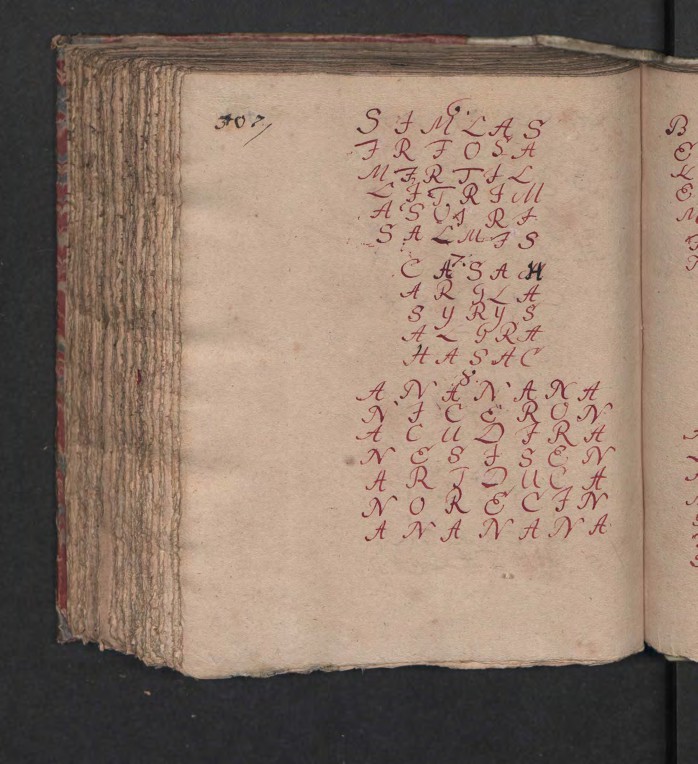 6.
S I M L A S
I R I O S A
M I R T I L
L I T R I M
A S O I R I
S A L M I S
7.
C A S A H
A R G L A
S Y R Y S
A L G R A
H A S A C
8.
A N A N A N A
N I C E R O N
A C U D I R A
N E S I S E N
A R I D U C A
N O R E C I N
A N A N A N A
B
E
L
E
M